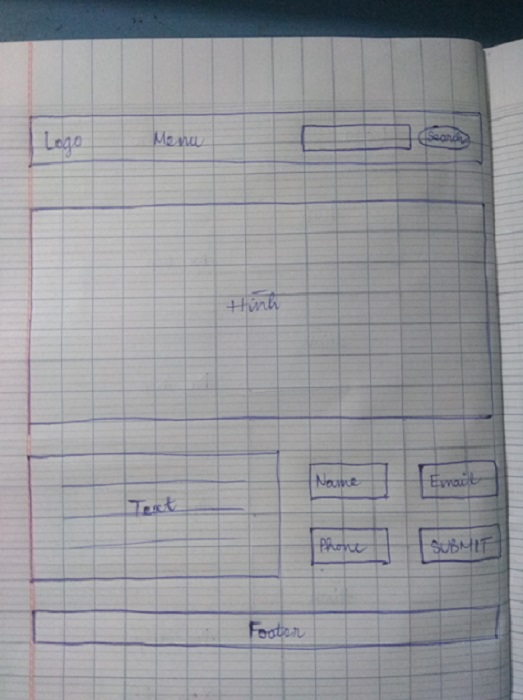 Logo Menu Search
Hình
Name Email
Text
Phone SUBMIT
Footer